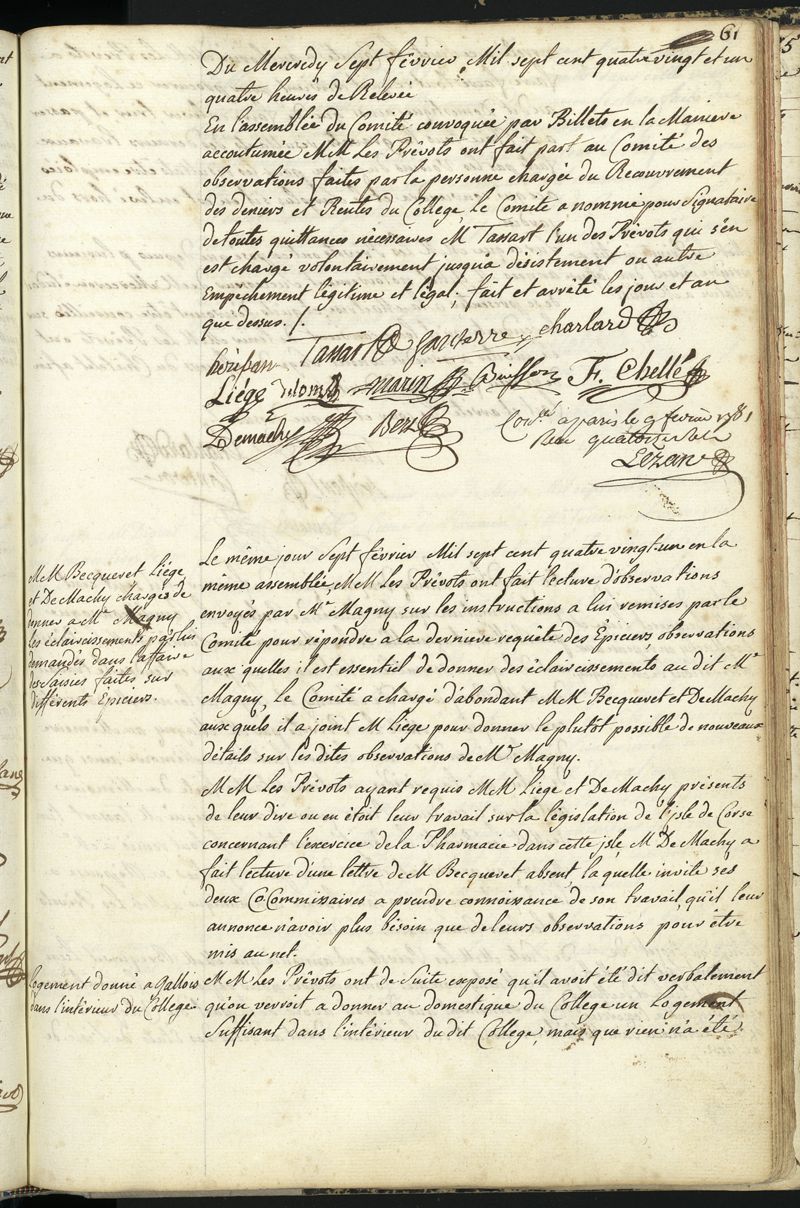 61
Du Mercredy Sept février Mil sept cent quatre vingt et un
quatre heures de Relevée
En l'assemblée du Comité convoquée par Billets en la Maniere
accoutumée MM Les Prévots ont fait part au Comité des
observations faites par la personne chargée du Recouvrement
des deniers et Rentes du College le Comité a nommé pour Signataire
de toutes quittances nécessaires M Tassart l'un des Prévots qui s'en
est chargé volontairement jusqu'a désistement ou autre
Empêchement légitime et légal; fait et arrêté les jour et an
que dessus ./.
Tassart charlard
Liége delom marin Buisson F. Chellé
Demachy
a paris le 9 fevrier 1781
quatorze sols
Lezan
MM Becqueret Liége
et De Machy chargés de
donner a Mr Magny
les éclaircissements par lui
demandés dans l'affaire
des Saisies faites sur
différents Epiciers.
Le même jour Sept février Mil sept cent quatre vingt-un en la
même assemblée, MM Les Prévots ont fait lecture d'observations
envoyés par Mr Magny sur les instructions a lui remises par le
Comité pour répondre a la derniere requête des Epiciers, observations
aux quelles il est essentiel de donner des éclaircissements au dit Mr
Magny, le Comité a chargé d'abondant MM Becqueret et De Machy
aux quels il a joint M Liege pour donner le plutôt possible de nouveaux
détails sur les dites observations de Mr Magny.
MM Les Prévots ayant requis MM Liege et De Machy présents
de leur dire ou en étoit leur travail sur la législation de l'isle de Corse
concernant l'exercice de la Pharmacie dans cette isle, M De Machy a
fait lecture d'une lettre de M Becqueret absent, la quelle invite ses
deux Co Commissaires a prendre connoissance de son travail, qu'il leur
annonce n'avoir plus bésoin que de leurs observations pour être
mis au net.
Logement donné a Gallois
dans l'intérieur du College.
MM Les Prévots ont de Suite exposé qu'il avoit été dit verbalement
qu'on verroit a donner au domestique du College un Logement
Suffisant dans l'intérieur du dit College, mais que rien n'a été